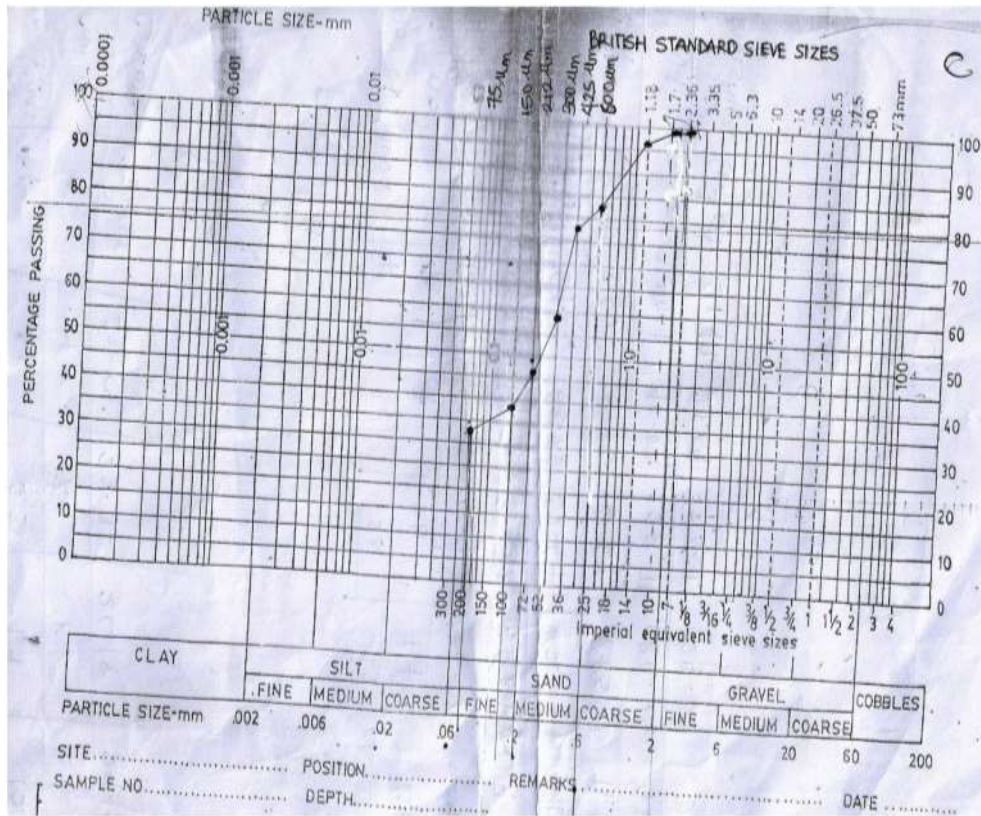 PARTICLE SIZE-mm
BRITISH STANDARD SIEVE SIZES
0.0001 0.001 0.01 75um 150um 212um 300um 425um 600um 1.18 1.7 2.36 3.35 5 6.3 10 14 20 26.5 37.5 50 73mm
100 100
90 90
80 80
70 70
60 60
50 50
40 40
30 30
20 20
10 10
0 0
PERCENTAGE PASSING
0.001 0.01 10 100
300 200 150 100 72 52 36 25 18 14 10 7 1/8 3/16 1/4 3/8 1/2 3/4 1 1 1/2 2 3 4
Imperial equivalent sieve sizes
CLAY SILT SAND GRAVEL COBBLES
FINE MEDIUM COARSE FINE MEDIUM COARSE FINE MEDIUM COARSE
PARTICLE SIZE-mm .002 .006 .02 .06 .2 .6 2 6 20 60 200
SITE.................. POSITION.................. REMARKS..................
SAMPLE NO.................. DEPTH.................. DATE ..........